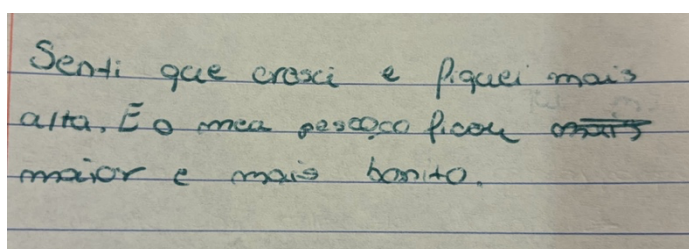 Senti que cresci e fiquei mais
alta. E o meu pescoço ficou mais
maior e mais bonito.